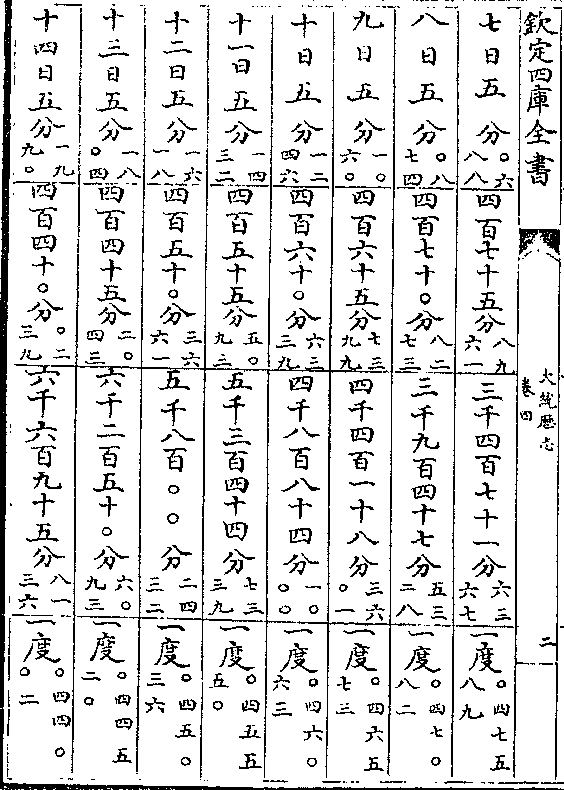 欽定四庫全書
大統歴志
卷四
二
七日五分〇六八八 四百七十五分八九六一 三千四百七十一分六三六七 一度〇四七五八九
八日五分〇八七四 四百七十〇分八二七三 三千九百四十七分五三二八 一度〇四七〇八二
九日五分一〇六〇 四百六十五分七三九九 四千四百一十八分三六〇一 一度〇四六五七三
十日五分一二四六 四百六十〇分六三三九 四千八百八十四分一〇〇〇 一度〇四六〇六三
十一日五分一四三二 四百五十五分五〇九三 五千三百四十四分七三三九 一度〇四五五五〇
十二日五分一六一八 四百五十〇分三六六一 五千八百〇〇分二四三二 一度〇四五〇三六
十三日五分一八〇四 四百四十五分二〇四三 六千二百五十〇分六〇九三 一度〇四四五二〇
十四日五分一九九〇 四百四十〇分〇二三九 六千六百九十五分八一三六 一度〇四四〇〇二